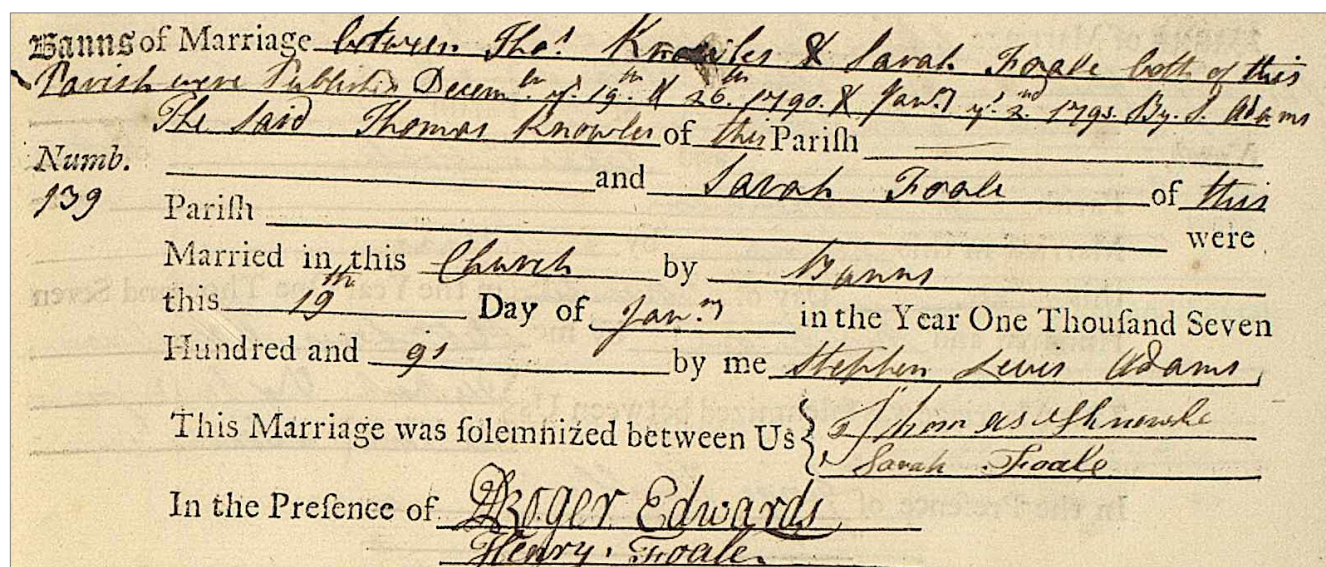 Banns of Marriage between Thos. Knowles & Sarah Foale both of this
Parish were Publish'd Decemr. ye. 19th. & 26th. 1790. & Jany. ye. 2nd. 1791. By S. Adams
The Said Thomas Knowles of this Pariſh
Numb. 139
and Sarah Foale of this
Pariſh were
Married in this Church by Banns
this 19th Day of Jany. in the Year One Thouſand Seven
Hundred and 91 by me Stephen Lewis Adams
This Marriage was ſolemnized between Us { Thomas Knowle
Sarah Foale
In the Preſence of Roger Edwards
Henry Foale